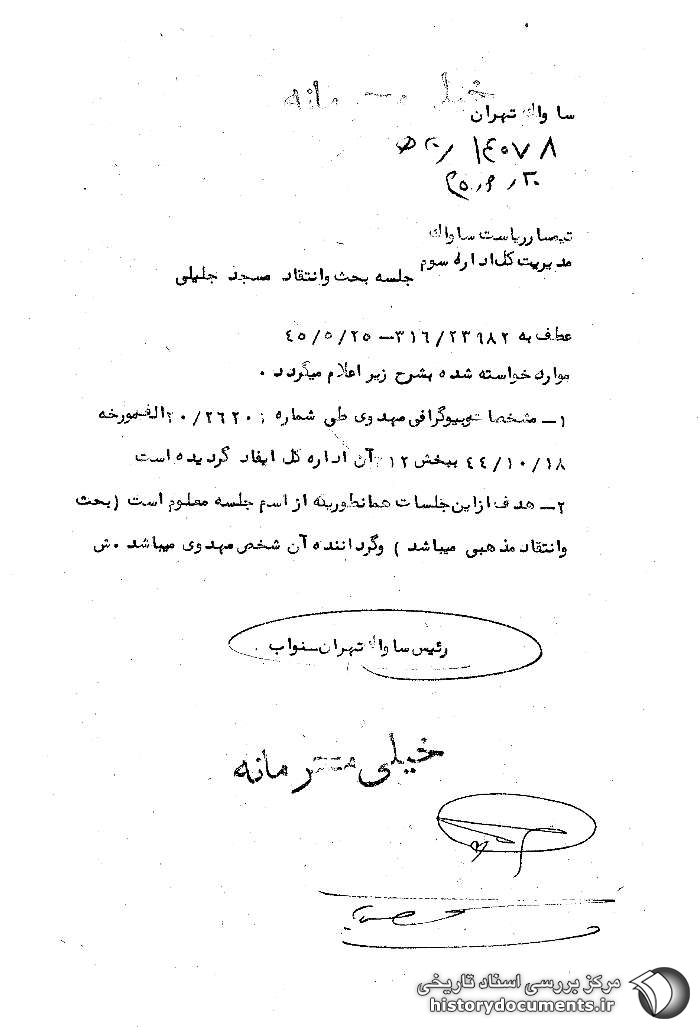 خیلی محرمانه
ساواك تهران
۱٤۰۷۸ / ۲۰ ه‍
۳۰ ر ۶ ر ٤۵
تیمسار ریاست ساواك
مدیریت کل اداره سوم
جلسه بحث وانتقاد مسجد جلیلی
عطف به ۳۱٦/۲۳۹۸۲ – ٤٥/٥/۲٥
موارد خواسته شده بشرح زیر اعلام میگردد .
۱– مشخصات وبیوگرافی مهدوی طی شماره ۲۰/۲٦۲۰ الف مورخه
٤٤/۱۰/۱۸ ببخش ۳۱۲ آن اداره کل ایفاد گردیده است
۲– هدف از این جلسات همانطوریکه از اسم جلسه معلوم است (بحث
وانتقاد مذهبی میباشد ) وگرداننده آن شخص مهدوی میباشد .ش
رئیس ساواك تهران نواب
خیلی محرمانه
مرکز بررسی اسناد تاریخی
historydocuments.ir